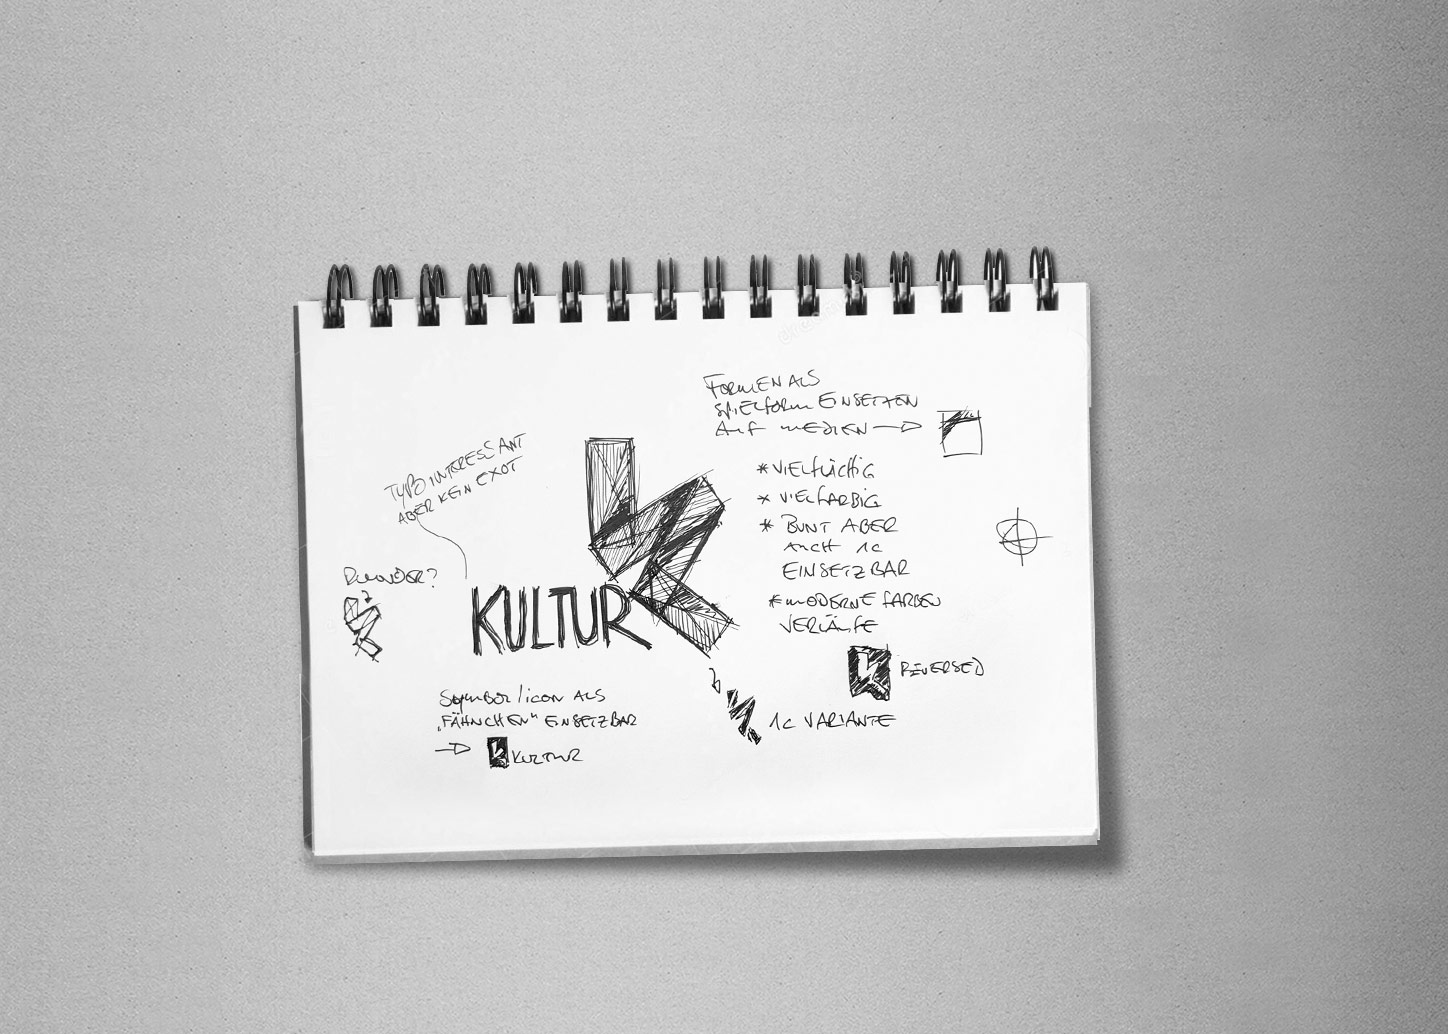 FORMEN ALS
SPIELFORM EINSETZEN
AUF MEDIEN
TYPO INTERESSANT
ABER KEIN EXOT
* VIELFLÄCHIG
* VIELFARBIG
* BUNT ABER
AUCH 1C
EINSETZBAR
* MODERNE FARBEN
VERLÄUFE
RUNDER?
KULTUR
REVERSED
SYMBOL/ICON ALS
„FÄHNCHEN“ EINSETZBAR
KULTUR
1C VARIANTE